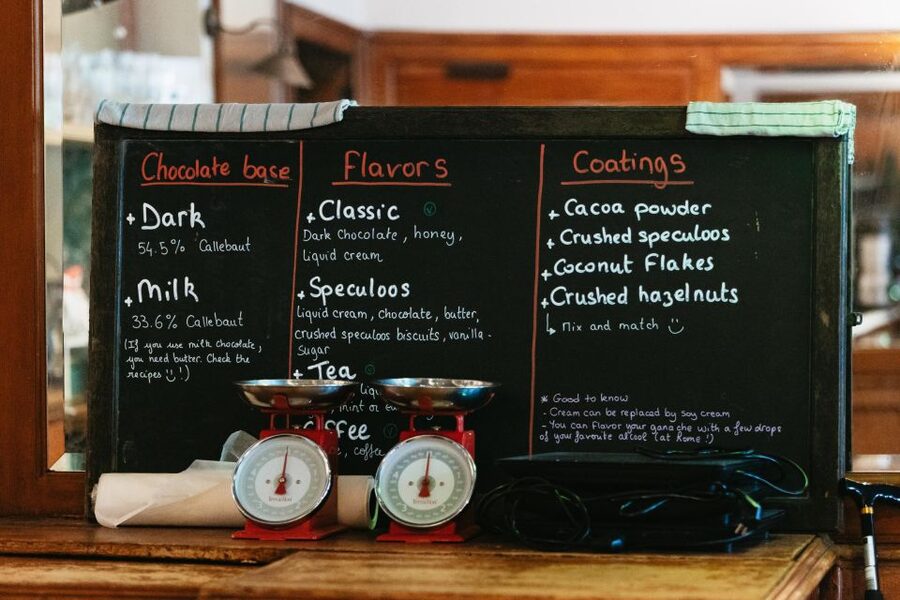 Chocolate base
+ Dark
54.5% Callebaut
+ Milk
33.6% Callebaut
(If you use milk chocolate,
you need butter. Check the
recipes !)
Flavors
+ Classic
Dark Chocolate, honey,
liquid cream
+ Speculoos
liquid cream, chocolate, butter,
crushed speculoos biscuits, vanilla -
sugar
+ Tea
mint or
coffe
Coatings
+ Cacoa powder
+ Crushed speculoos
+ Coconut Flakes
+ Crushed hazelnuts
Mix and match
* Good to know
- Cream can be replaced by soy cream
- You can flavor your ganache with a few drops
of your favorite alcool (at home !)